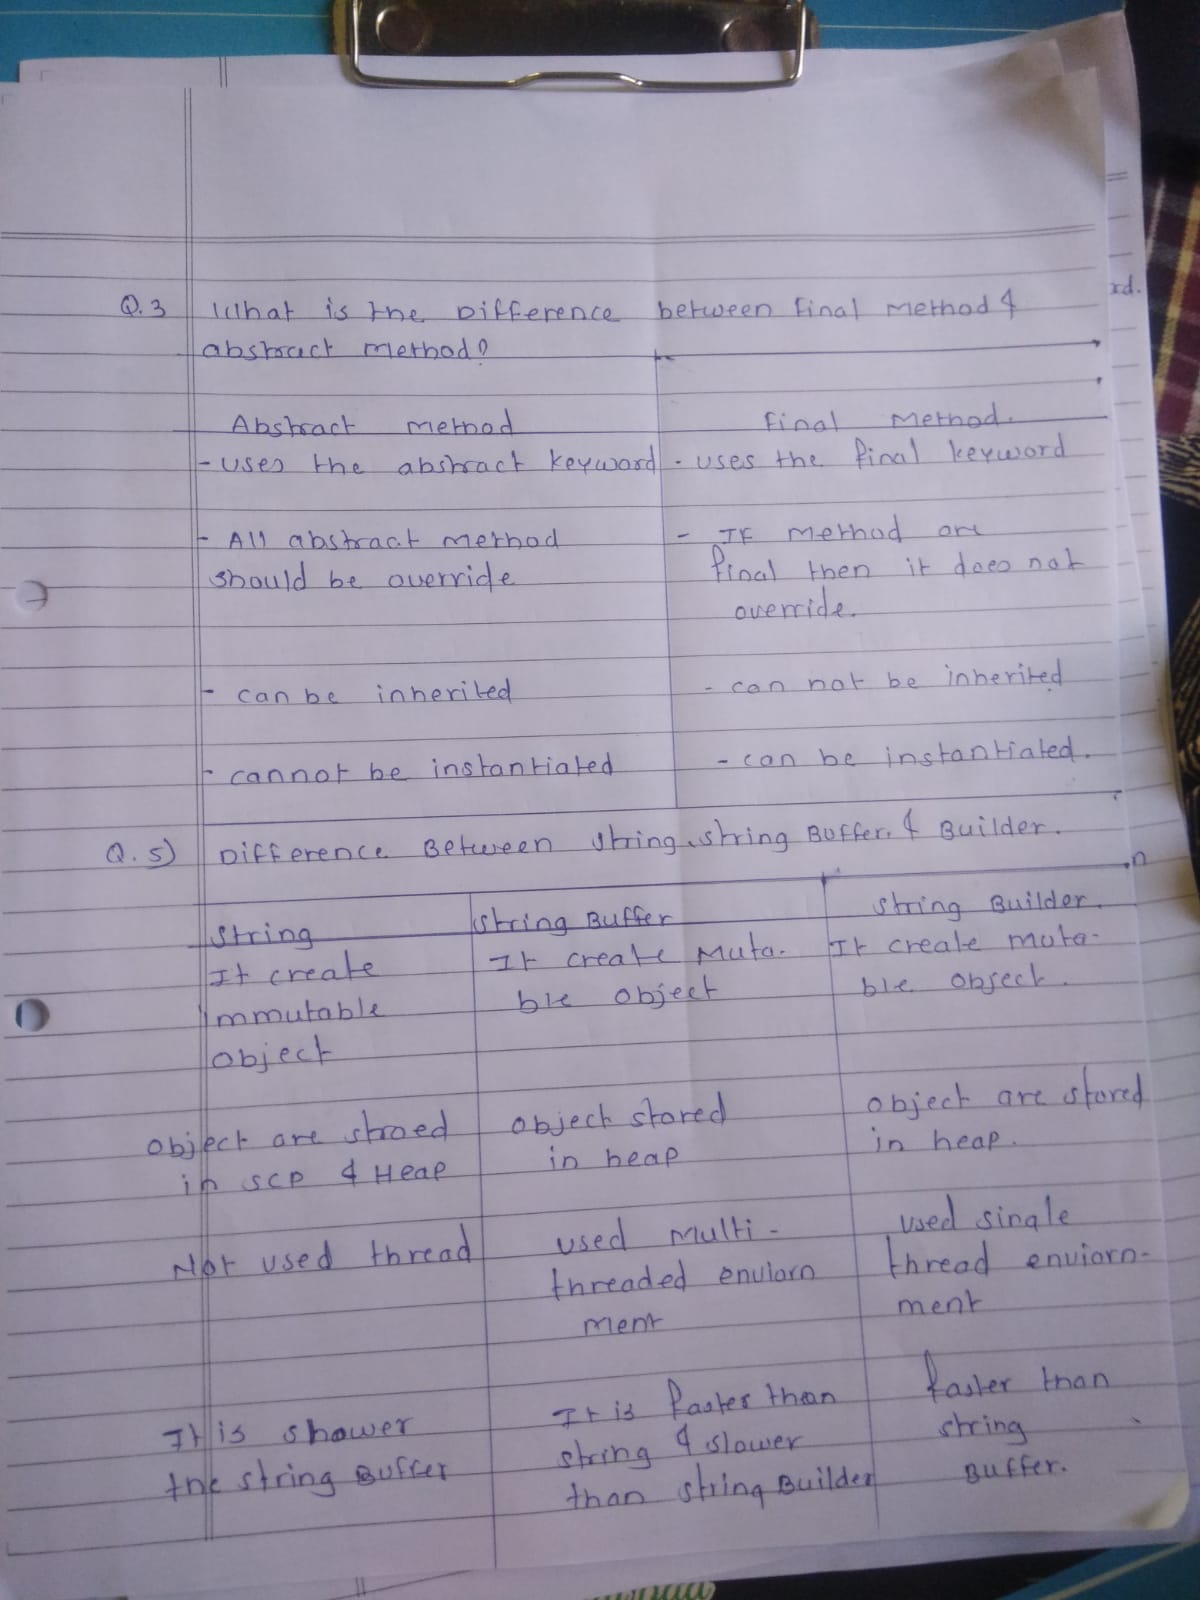 Q.3 What is the Difference between final method &
abstract method?
Abstract method
final method.
- uses the abstract keyword
- uses the final keyword
- All abstract method
should be override
- If method are
final then it does not
override.
- can be inherited
- can not be inherited
- cannot be instantiated
- can be instantiated.
Q.5) Difference Between string, string Buffer & Builder.
String
It create
immutable
object
string Buffer
It create Muta-
ble object
string Builder.
It create muta-
ble object.
object are stroed
in SCP & Heap
object stored
in heap
object are stored
in heap.
Not used thread
used multi-
threaded enviorn
ment
used single
thread enviorn-
ment
It is shower
the string Buffer
It is faster than
string & slower
than string Builder
faster than
string
Buffer.
rd.
n